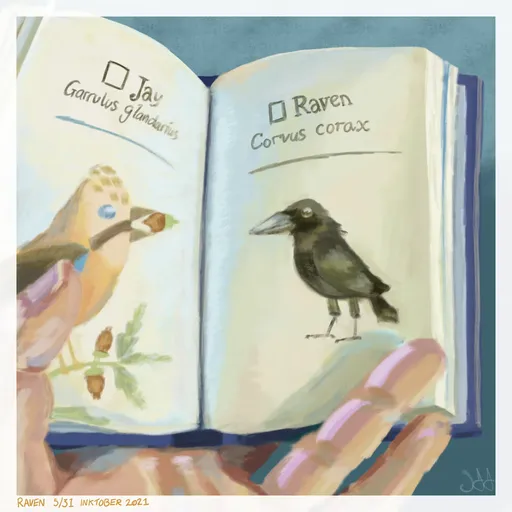 Jay
Garrulus glandarius
Raven
Corvus corax
RAVEN 5/31 INKTOBER 2021